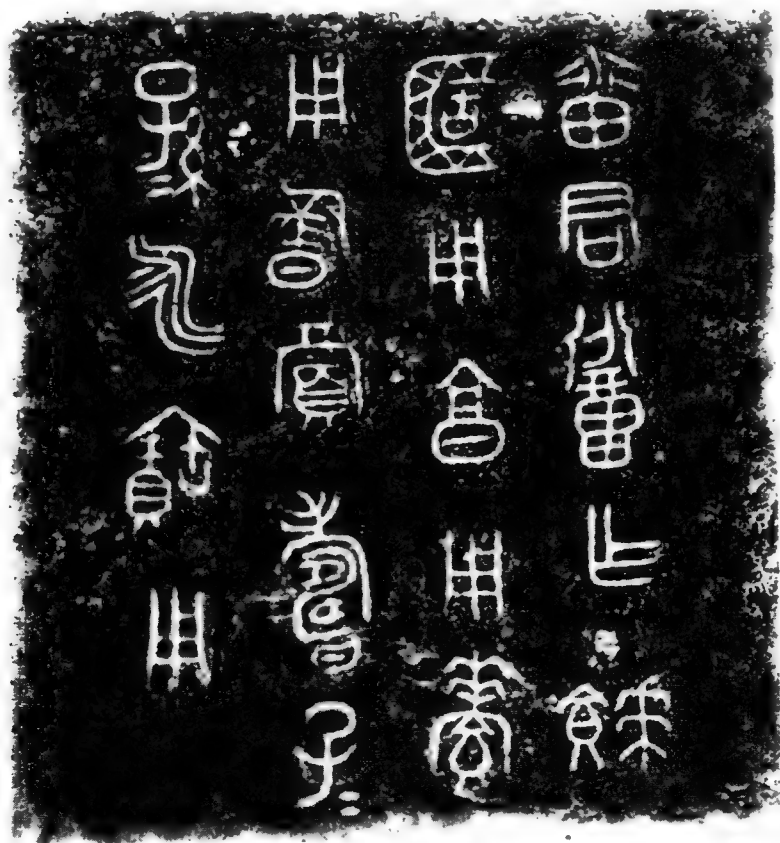 番君召乍餴
𠤳用亯用孝
用祈眉壽子=
孫=永寶用